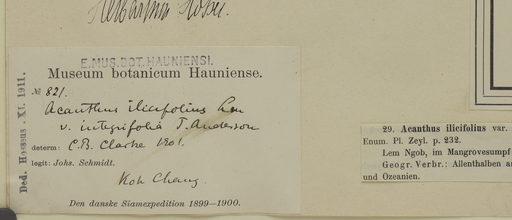 Herbarium Hosei.
E.MUS.BOT.HAUNIENSI.
Museum botanicum Hauniense.
№ 821.
Acanthus ilicifolius Linn
v. integrifolia T. Anderson
determ: C.B. Clarke 1901.
legit: Johs. Schmidt.
Koh Chang.
Den danske Siamexpedition 1899—1900.
Ded. Hosseus - XI. 1911.
29. Acanthus ilicifolius var.
Enum. Pl. Zeyl. p. 232.
Lem Ngob, im Mangrovesumpf
Geogr. Verbr.: Allenthalben a
und Ozeanien.